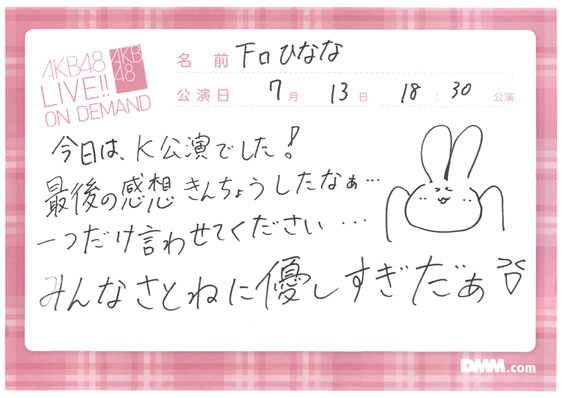 AKB48
LIVE!!
ON DEMAND
AKB
48
名前 下口ひなな
公演日 7月 13日 18:30 公演
今日は、K公演でした!
最後の感想きんちょうしたなぁ…
一つだけ言わせてください…
みんなさとねに優しすぎだぁ
DMM.com